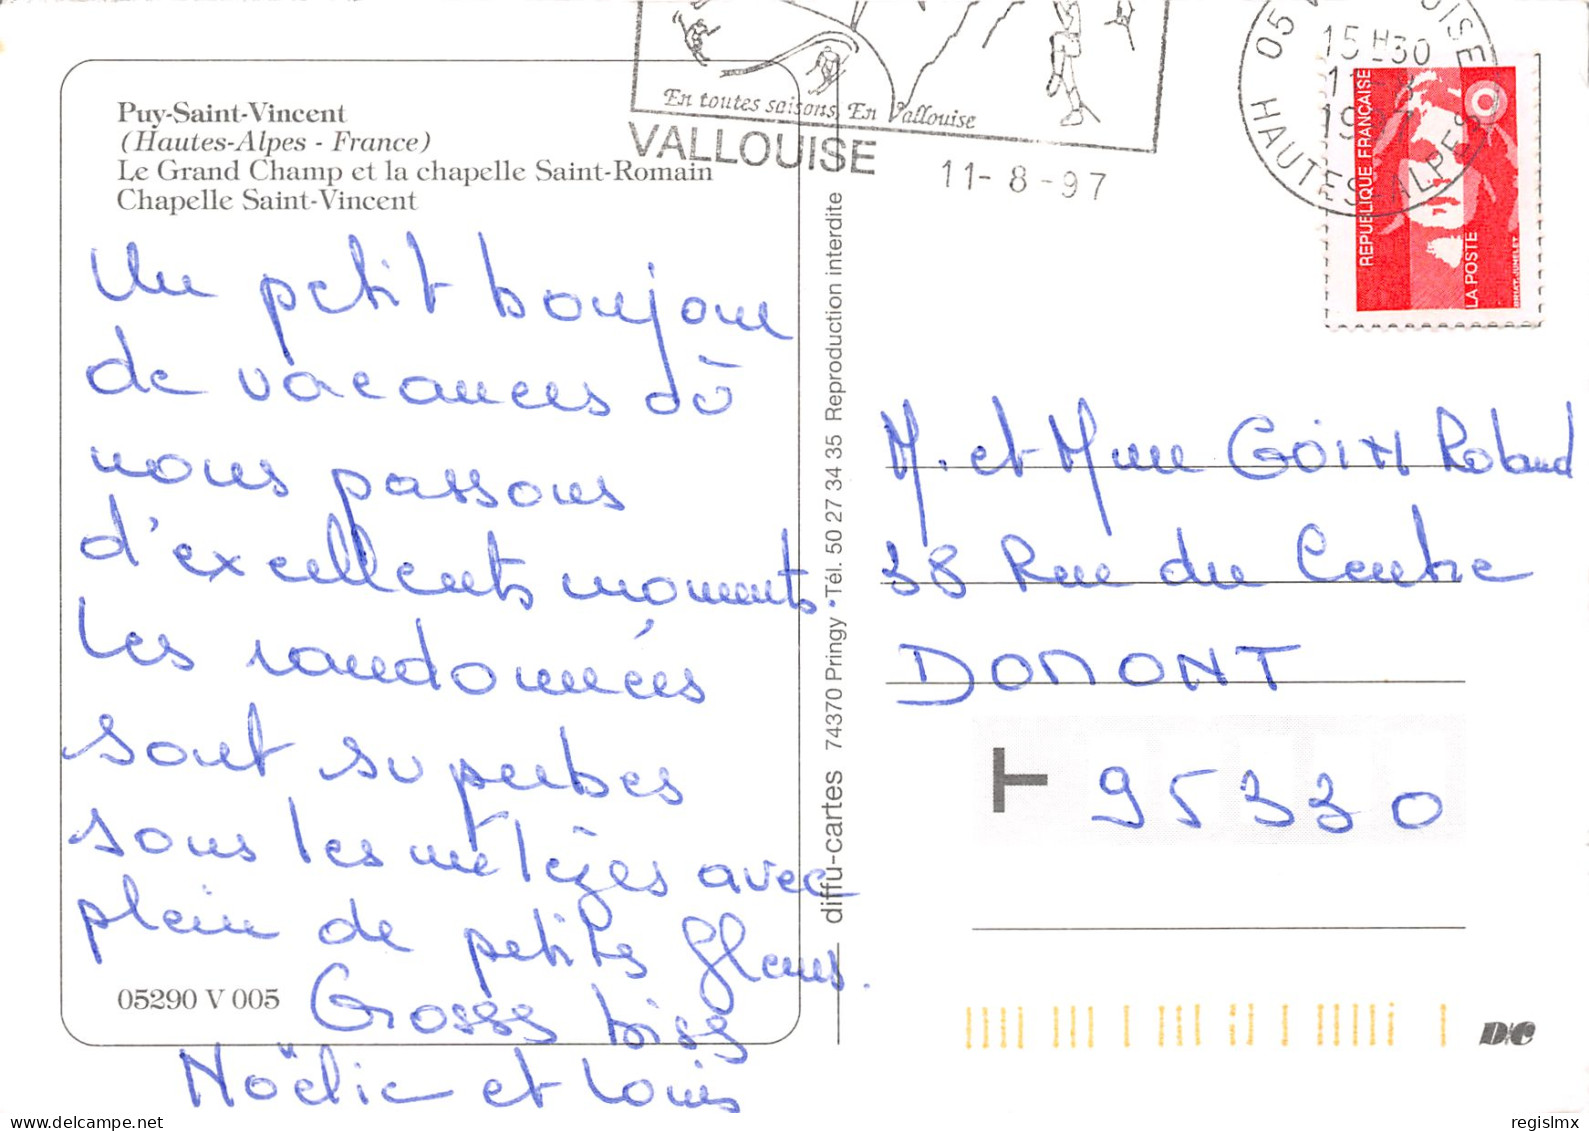 Puy-Saint-Vincent
(Hautes-Alpes - France)
Le Grand Champ et la chapelle Saint-Romain
Chapelle Saint-Vincent
Un petit bonjour
de vacances où
nous passons
d'excellents moments.
Les randonnées
sont superbes
sous les mélèzes avec
plein de petites fleurs.
Grosses bises
Noëlie et Louis
05290 V 005
diffu-cartes 74370 Pringy • Tél. 50 27 34 35 Reproduction interdite
En toutes saisons, En Vallouise
VALLOUISE
11-8-97
15H30
1997
05
HAUTES-ALPES
RÉPUBLIQUE FRANÇAISE
LA POSTE
M. et Mme GOIX Roland
38 Rue du Centre
DOMONT
95330
D/C
regislmx